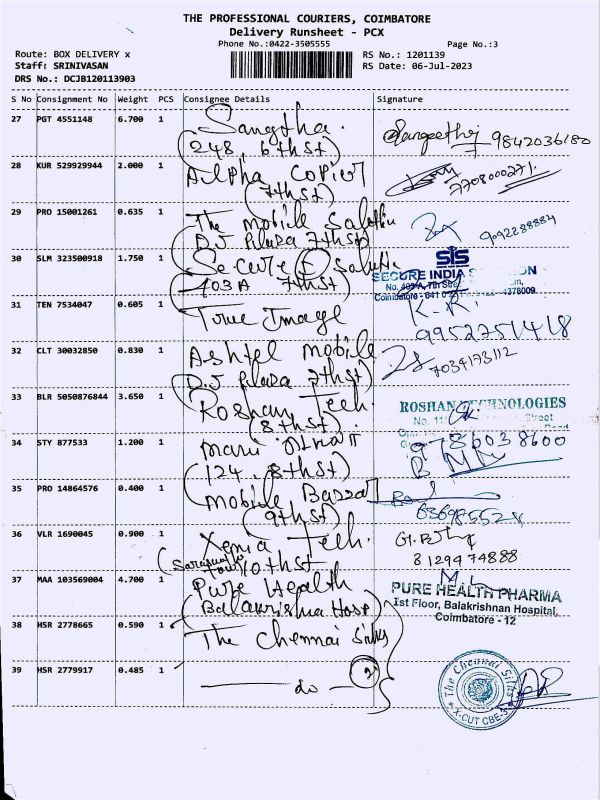 THE PROFESSIONAL COURIERS, COIMBATORE
Delivery Runsheet - PCX
Phone No.:0422-3505555
Page No.:3
Route: BOX DELIVERY x
RS No.: 1201139
Staff: SRINIVASAN
RS Date: 06-Jul-2023
DRS No.: DCJB120113903
S No Consignment No Weight PCS Consignee Details Signature
27 PGT 4551148 6.700 1 Sangtha. Sangeetha 9842036180
(248, 6th st)
28 KUR 529929944 2.000 1 Alpha Copier 7708000271
(7th st)
29 PRO 15001261 0.635 1 The mobile 9092288884
D.J Plaza 7th st)
30 SLM 323500918 1.750 1 Secure SIS
SECURE INDIA
403A 7th st) No. 403A, 7th
Coimbatore - 641 0
4378009
31 TEN 7534047 0.605 1 True Image K-R
9952751418
32 CLT 30032850 0.830 1 Ashtel mobile 7034173112
(D.J Plaza 7th st)
33 BLR 5050876844 3.650 1 Roshan Tech. ROSHAN TECHNOLOGIES
(8th st) Street
34 STY 877533 1.200 1 9786038600
(124, 8th st)
35 PRO 14864576 0.400 1 mobile Bazzar
(9th st)
36 VLR 1690045 0.900 1 Xenia Tech.
10th st 8129474888
37 MAA 103569004 4.700 1 Pure Health PURE HEALTH PHARMA
(Balakrishna Hosp) Ist Floor, Balakrishnan Hospital,
Coimbatore - 12
38 HSR 2778665 0.590 1 The Chennai Silks
39 HSR 2779917 0.485 1 do 2
The Chennai Silks
X-CUT CBE-3